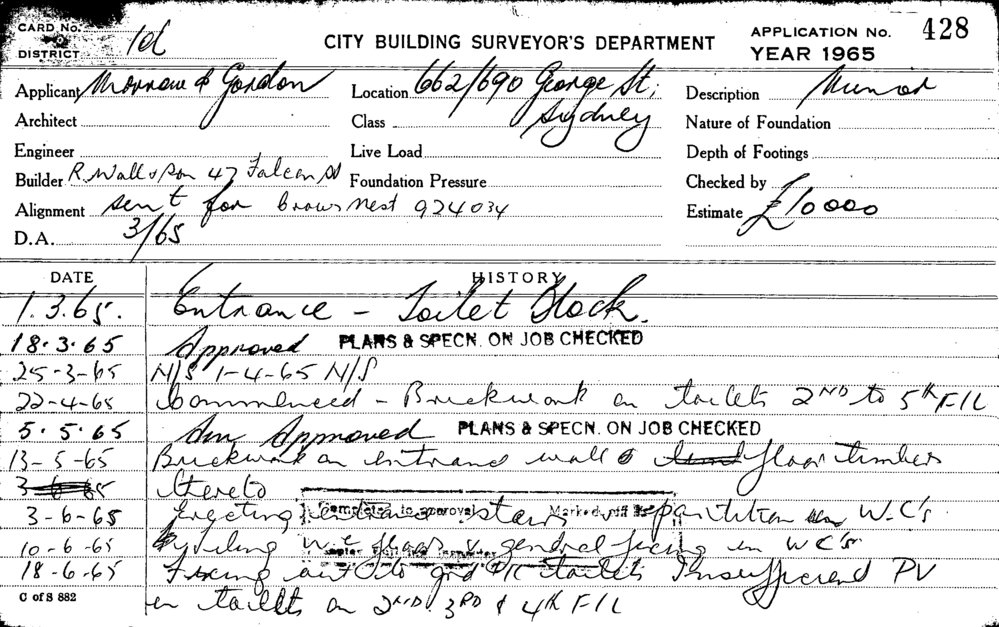 CARD No.
DISTRICT
CITY BUILDING SURVEYOR'S DEPARTMENT
APPLICATION No. 428
YEAR 1965
Applicant Morrow & Gordon
Location 662/690 George St,
Sydney
Description
Architect
Class
Nature of Foundation
Engineer
Live Load
Depth of Footings
Builder R. Wall & Son 47 Falcon St
Foundation Pressure
Checked by
Alignment sent for Crows Nest 924034
Estimate £10000
D.A. 3/65
DATE HISTORY
1.3.65. Entrance - Toilet Block.
18.3.65 Approved PLANS & SPECN. ON JOB CHECKED
25-3-65 N/S 1-4-65 N/S
22-4-65 Commenced - Brickwork on toilets 2ND to 5th F/L
5.5.65 Am Approved PLANS & SPECN. ON JOB CHECKED
13-5-65 Brickwork on entrance wall & floor timbers
3-6-65 thereto
3-6-65 Erecting entrance stairs & partition W.C's
Completed to approval Marked off
10-6-65 Tyling WC floors & general fixing in WC's
18-6-65 Fixing out to grd F/L toilets Insufficient PV
C of S 882
in toilets on 2ND 3RD & 4th F/L